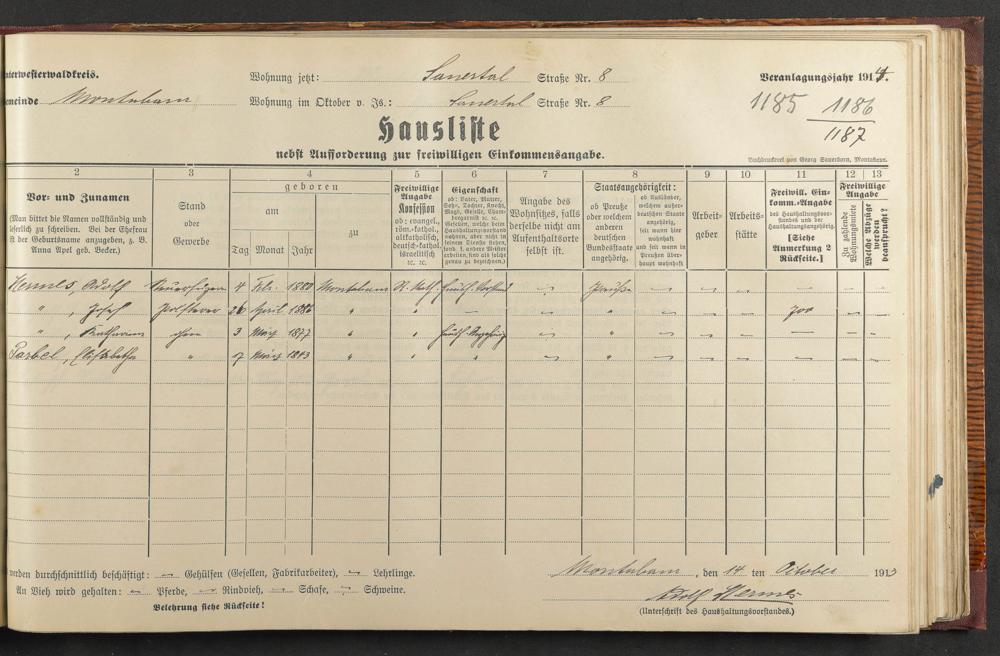 nterwesterwaldkreis.
Wohnung jetzt: Sauertal Straße Nr. 8
Veranlagungsjahr 1914.
emeinde Montabaur
Wohnung im Oktober v. Js.: Sauertal Straße Nr. 8
1185 1186
1187
Hausliste
nebst Aufforderung zur freiwilligen Einkommensangabe.
Buchdruckerei von Georg Sauerborn, Montabaur.
2 3 4 5 6 7 8 9 10 11 12 13
Vor- und Zunamen
(Man bittet die Namen vollständig und
leserlich zu schreiben. Bei der Ehefrau
ist der Geburtsname anzugeben, z. B.
Anna Apel geb. Becker.)
Stand
oder
Gewerbe
geboren
am
zu
Tag Monat Jahr
Freiwillige
Angabe
Konfession
ob: evangel.,
röm.-kathol.,
altkatholisch,
deutsch-kathol.
israelitisch
ec. ec.
Eigenschaft
ob: Vater, Mutter,
Sohn, Tochter, Knecht,
Magd, Geselle,
welche beim
Haushaltungsvorstand
wohnen, aber nicht in
seinem Dienste stehen,
genau zu bezeichnen.)
Angabe des
Wohnsitzes, falls
derselbe nicht am
Aufenthaltsorte
selbst ist.
Staatsangehörigkeit:
ob Preuße
oder welchem
anderen
deutschen
Bundesstaate
angehörig.
ob Ausländer,
welchem außer-
deutschen Staate
angehörig,
seit wann hier
wohnhaft
und seit wann in
Preußen über-
haupt wohnhaft
Arbeit-
geber
Arbeits-
stätte
Freiwill. Ein-
komm.-Angabe
des Haushaltungsvor-
standes und der
Haushaltungsangehörig.
[Siehe
Anmerkung 2
Rückseite.]
Freiwillige
Angabe
Zu zahlende
Wohnungsmiete
Welche Abzüge
werden
beansprucht?
Hermes, Adolf 4 Febr. 1880 Montabaur R. Kath. Preuße
" , Josef Polsterer 26 April 1886 " " — "
" , Katharina ohne 3 März 1877 " " "
Elisabetha " 7 März 1843 " " " "
werden durchschnittlich beschäftigt: — Gehülfen (Gesellen, Fabrikarbeiter), — Lehrlinge.
An Vieh wird gehalten: — Pferde, — Rindvieh, — Schafe, — Schweine.
Belehrung siehe Rückseite!
Montabaur, den 14 ten October 1913
Adolf Hermes
(Unterschrift des Haushaltungsvorstandes.)